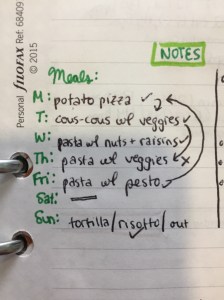 Personal filofax Ref: 68409
© 2015
NOTES
Meals:
M: potato pizza ✓
T: cous-cous w/ veggies ✓
W: pasta w/ nuts + raisins ✓
Th: pasta w/ veggies x
Fri: pasta w/ pesto
Sat:
Sun: tortilla/risotto/out